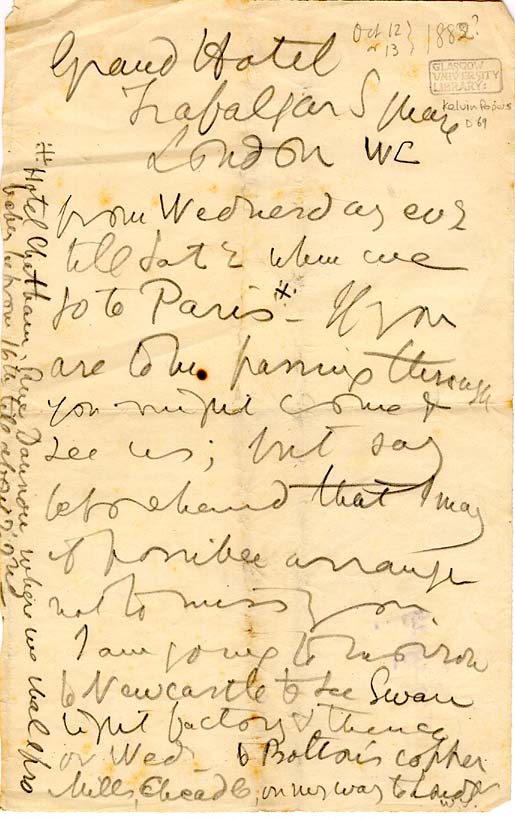 Oct 12 }
or 13 } 1882?
GLASGOW
UNIVERSITY
LIBRARY:
Kelvin Papers
D 69
Grand Hotel
Trafalgar Square
London WC
from Wednesday evg
till Saty when we
go to Paris #. If you
are to be passing through
you might come &
see us; but say
beforehand that I may
if possible arrange
not to miss you.
I am going tomorrow
to Newcastle to see Swan
light factory & thence
on Wed. to Bolton's copper
Mills, Cheadle, on my way to
# Hotel Chatham, Rue Daunou, where we shall pro
bably be from 16th till about